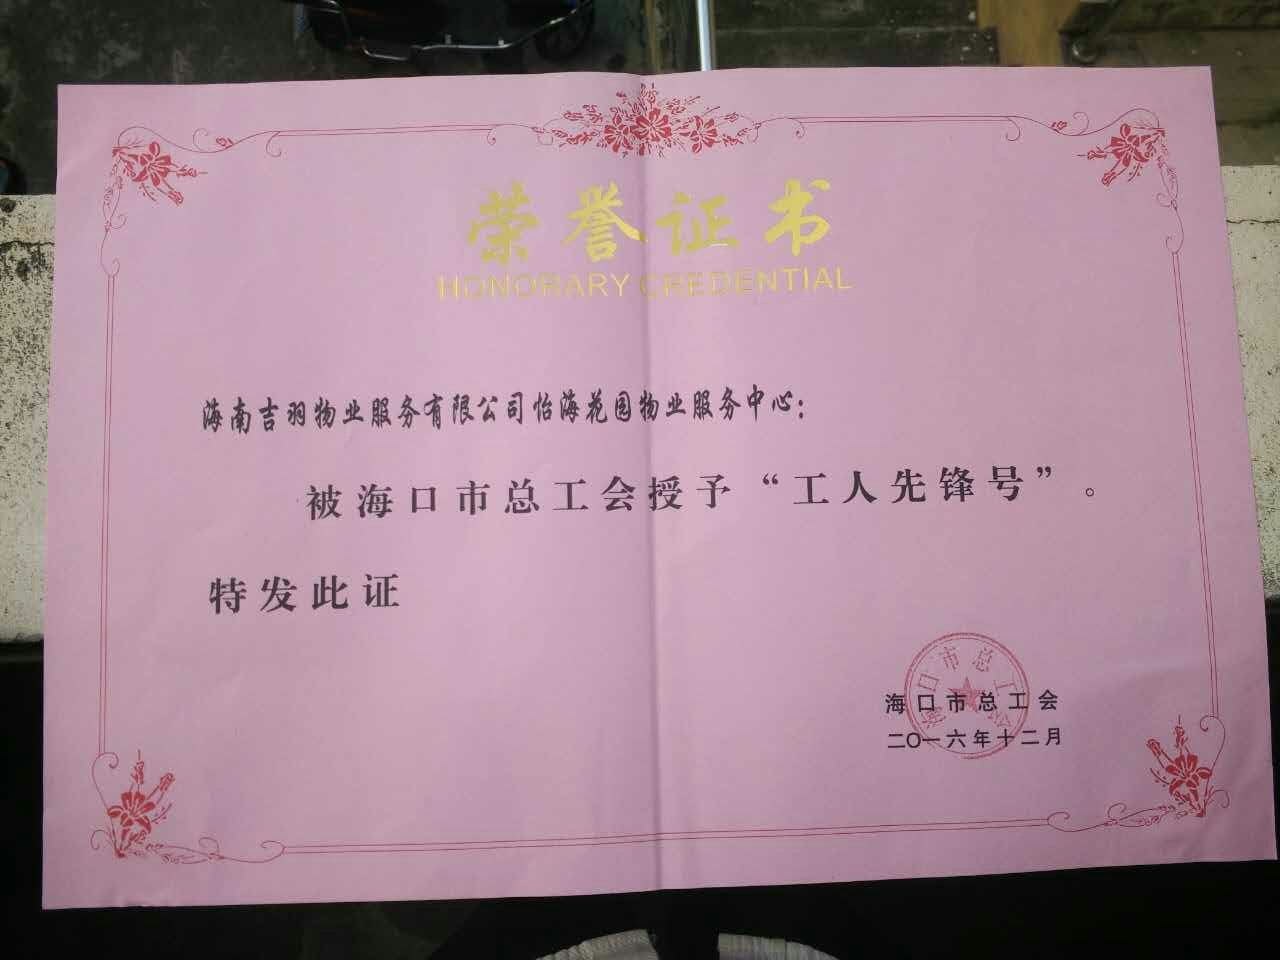 荣誉证书
HONORARY CREDENTIAL
海南吉羽物业服务有限公司怡海花园物业服务中心：
被海口市总工会授予“工人先锋号”。
特发此证
海口市总工会
海口市总工会
二〇一六年十二月